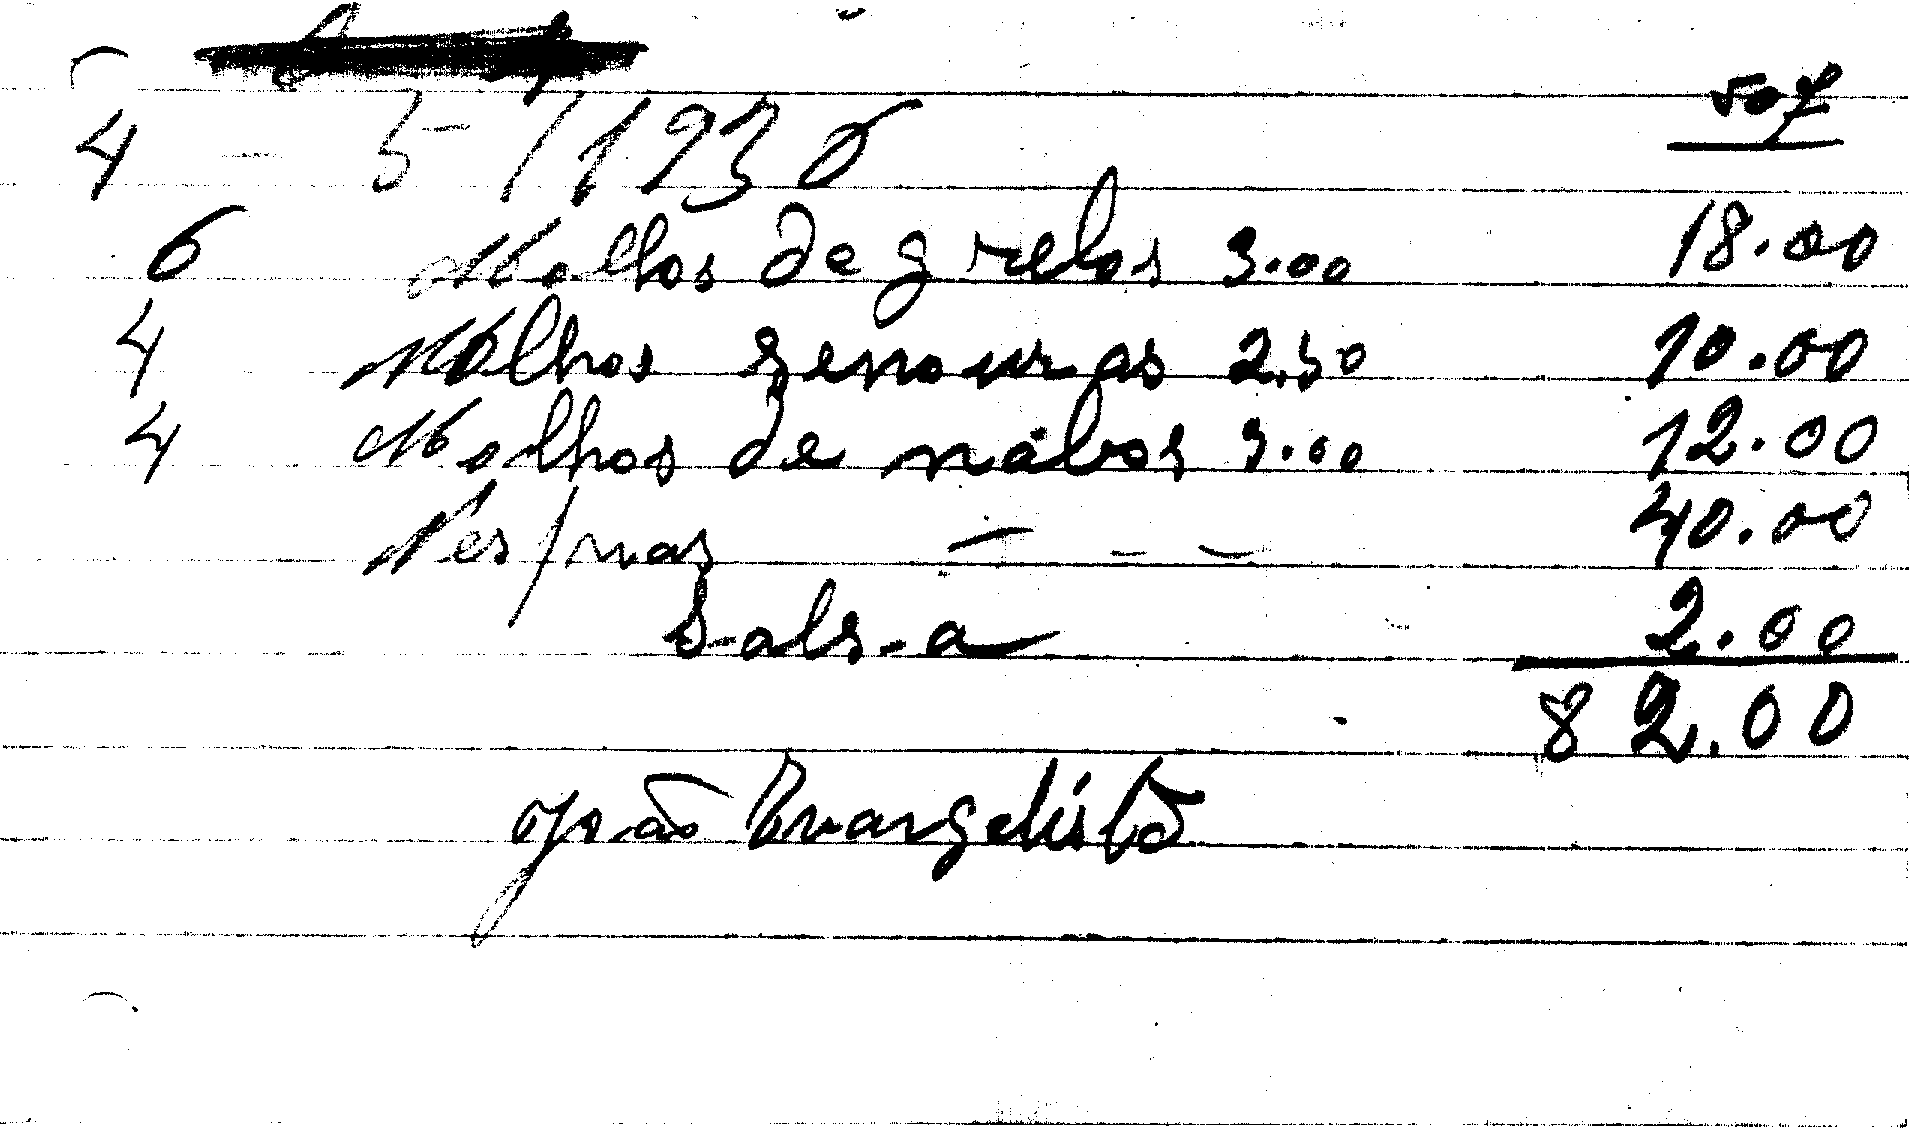 507
4 - 5-/1936
6 Molhos de grelos 3.00 18.00
4 Molhos senouras 2.50 10.00
4 Molhos de nabos 3.00 12.00
Nesp/ras - - - 40.00
Salsa 2.00
82.00
João Evangelista